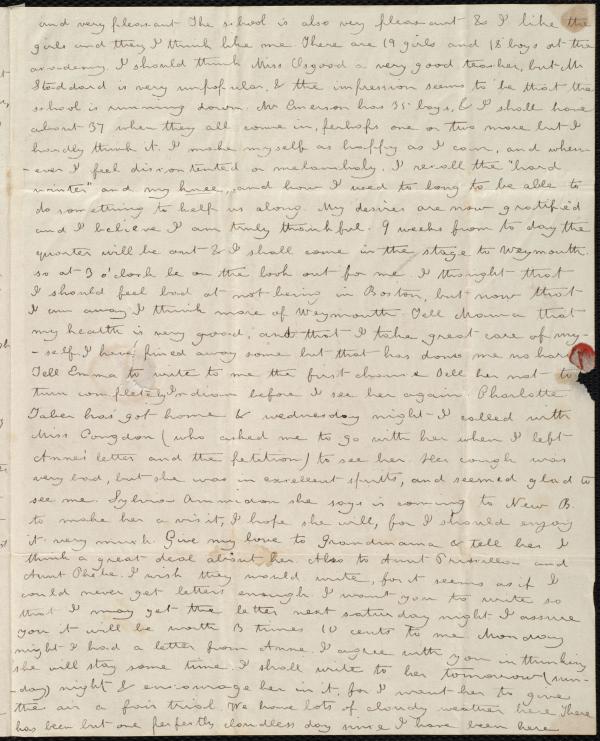 and very pleasant The school is also very pleasant & I like the
girls and they I think like me. There are 19 girls and 18 boys at the
academy. I should think Miss Osgood a very good teacher, but Mr
Stoddard is very unpopular, & the impression seems to be that the
school is running down. Mr Emerson has 35 boys, & I shall have
about 37 when they all come in, perhaps one or two more but I
hardly think it. I make myself as happy as I can, and when-
-ever I feel discontented or melancholy, I recall the "hard
winter" and my knee, and how I used to long to be able to
do something to help us along. My desires are now gratified
and I believe I am truly thankful. 9 weeks from to day the
quarter will be out & I shall come in the stage to Weymouth.
so at 3 o'clock be on the look out for me. I thought that
I should feel bad at not being in Boston, but now that
I am away I think more of Weymouth. Tell Mama that
my health is very good, and that I take great care of my-
-self. I have pined away some but that has done me no har
Tell Emma to write to me the first chance Tell her not to
turn completely Indian before I see her again. Charlotte
Taber has got home & wednesday night I called with
Miss Congdon (who asked me to go with her when I left
Anne's letter and the petition) to see her Her cough was
very bad, but she was in excellent spirits, and seemed glad to
see me. Sylvia Ammidon she says is coming to New B.
to make her a visit, I hope she will, for I should enjoy
it very much. Give my love to Grandmama & tell her I
think a great deal about her. Also to Aunt Priscilla and
Aunt Phebe. I wish they would write, for it seems as if I
could never get letters enough. I want you to write so
that I may get the letter next saturday night I assure
you it will be worth 3 times 10 cents to me Monday
night I had a letter from Anne. I agree with you in thinking
she will stay some time. I shall write to her tomorrow (sun-
-day) night & encourage her in it, for I want her to give
the air a fair trial. We have lots of cloudy weather here There
has been but one perfectly cloudless day since I have been here